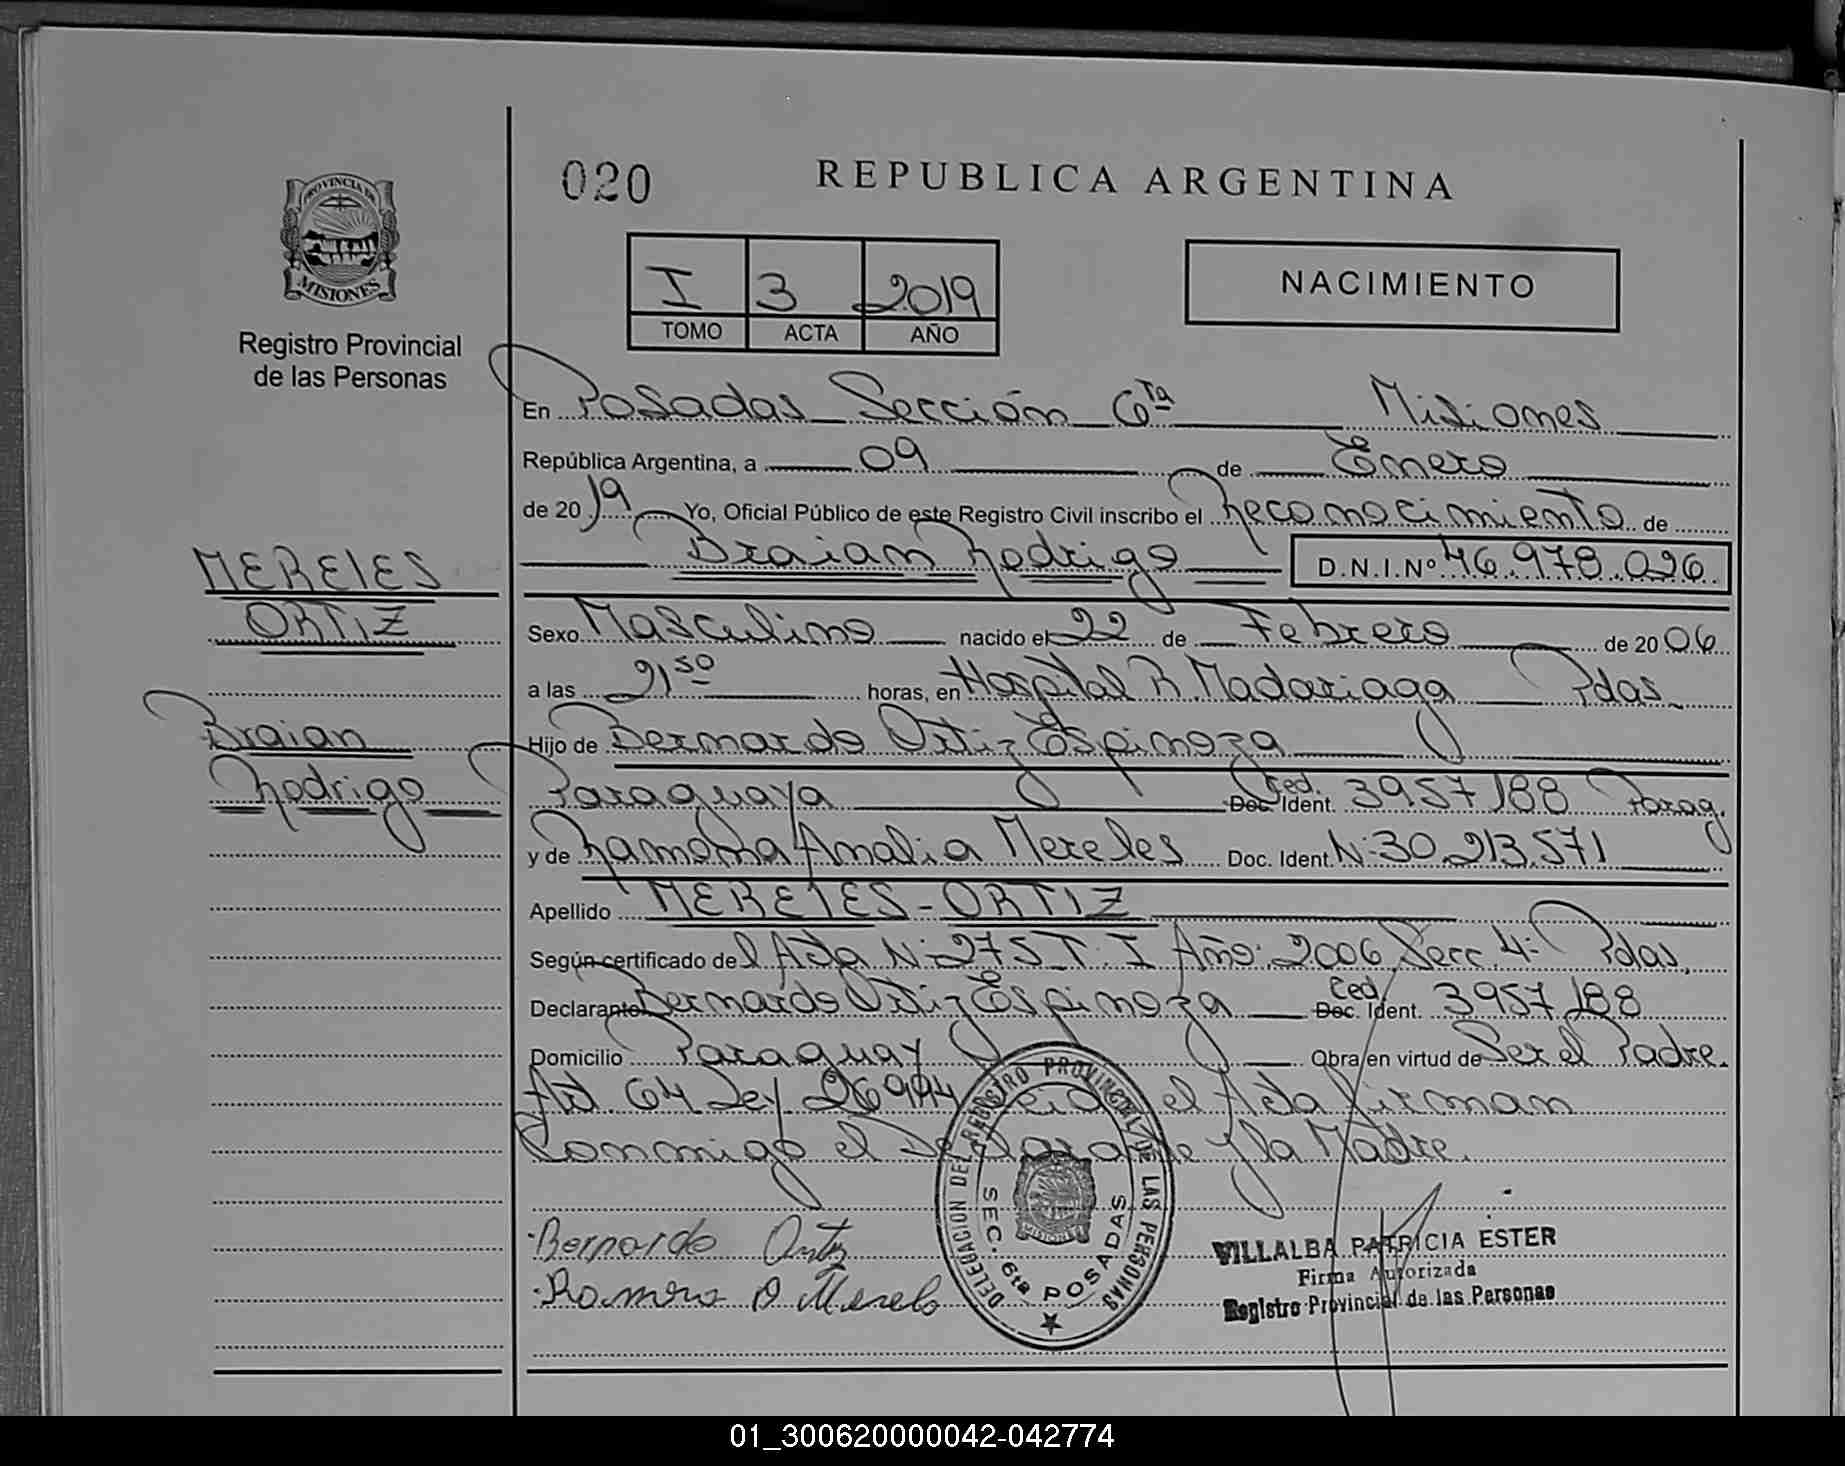 020
REPUBLICA ARGENTINA
PROVINCIA DE
MISIONES
Registro Provincial
de las Personas
I 3 2019
TOMO ACTA AÑO
NACIMIENTO
En Posadas Sección 6ta Misiones
República Argentina, a 09 de Enero
de 2019 Yo, Oficial Público de este Registro Civil inscribo el Reconocimiento de
Braian Rodrigo D.N.I.Nº 46.978.026
MERELES
ORTIZ
Braian
Rodrigo
Sexo Masculino nacido el 22 de Febrero de 2006
a las 21 50 horas, en Hospital R. Madariaga Pdas.
Hijo de Bernardo Ortiz Espinoza
Paraguaya Ced. Doc. Ident. 3957188 Parag.
y de Ramona Amalia Mereles Doc. Ident. N: 30.213.571
Apellido MERELES - ORTIZ
Según certificado del Acta N: 275 T: I Año: 2006 Secc. 4: Pdas.
Declarante Bernardo Ortiz Espinoza Ced. Doc. Ident. 3957188
Domicilio Paraguay Obra en virtud de Ser el Padre.
Art. 64 Ley 26994 Leida el Acta firman
Conmigo el Declarante y la Madre.
Bernardo Ortiz
Ramona A Mereles
DELEGACION DEL REGISTRO PROVINCIAL DE LAS PERSONAS
SEC. 6ta POSADAS
MISIONES
VILLALBA PATRICIA ESTER
Firma Autorizada
Registro Provincial de las Personas
01_300620000042-042774